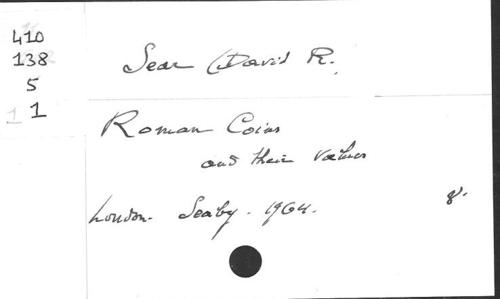 410
138
5
1 1
Sear (David R.
Roman Coins
and their values
London. Seaby. 1964.
8°.